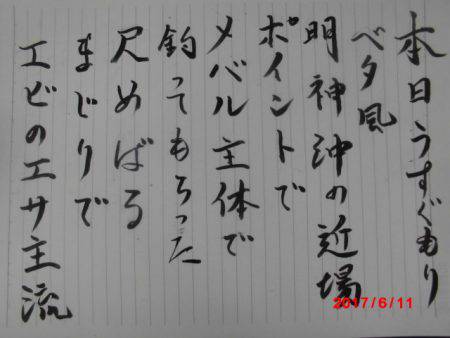 本日うすぐもり
ベタ風
明神沖の近場
ポイントで
メバル主体で
釣ってもらった
尺めばる
まじりで
エビのエサ主流
2017/6/11